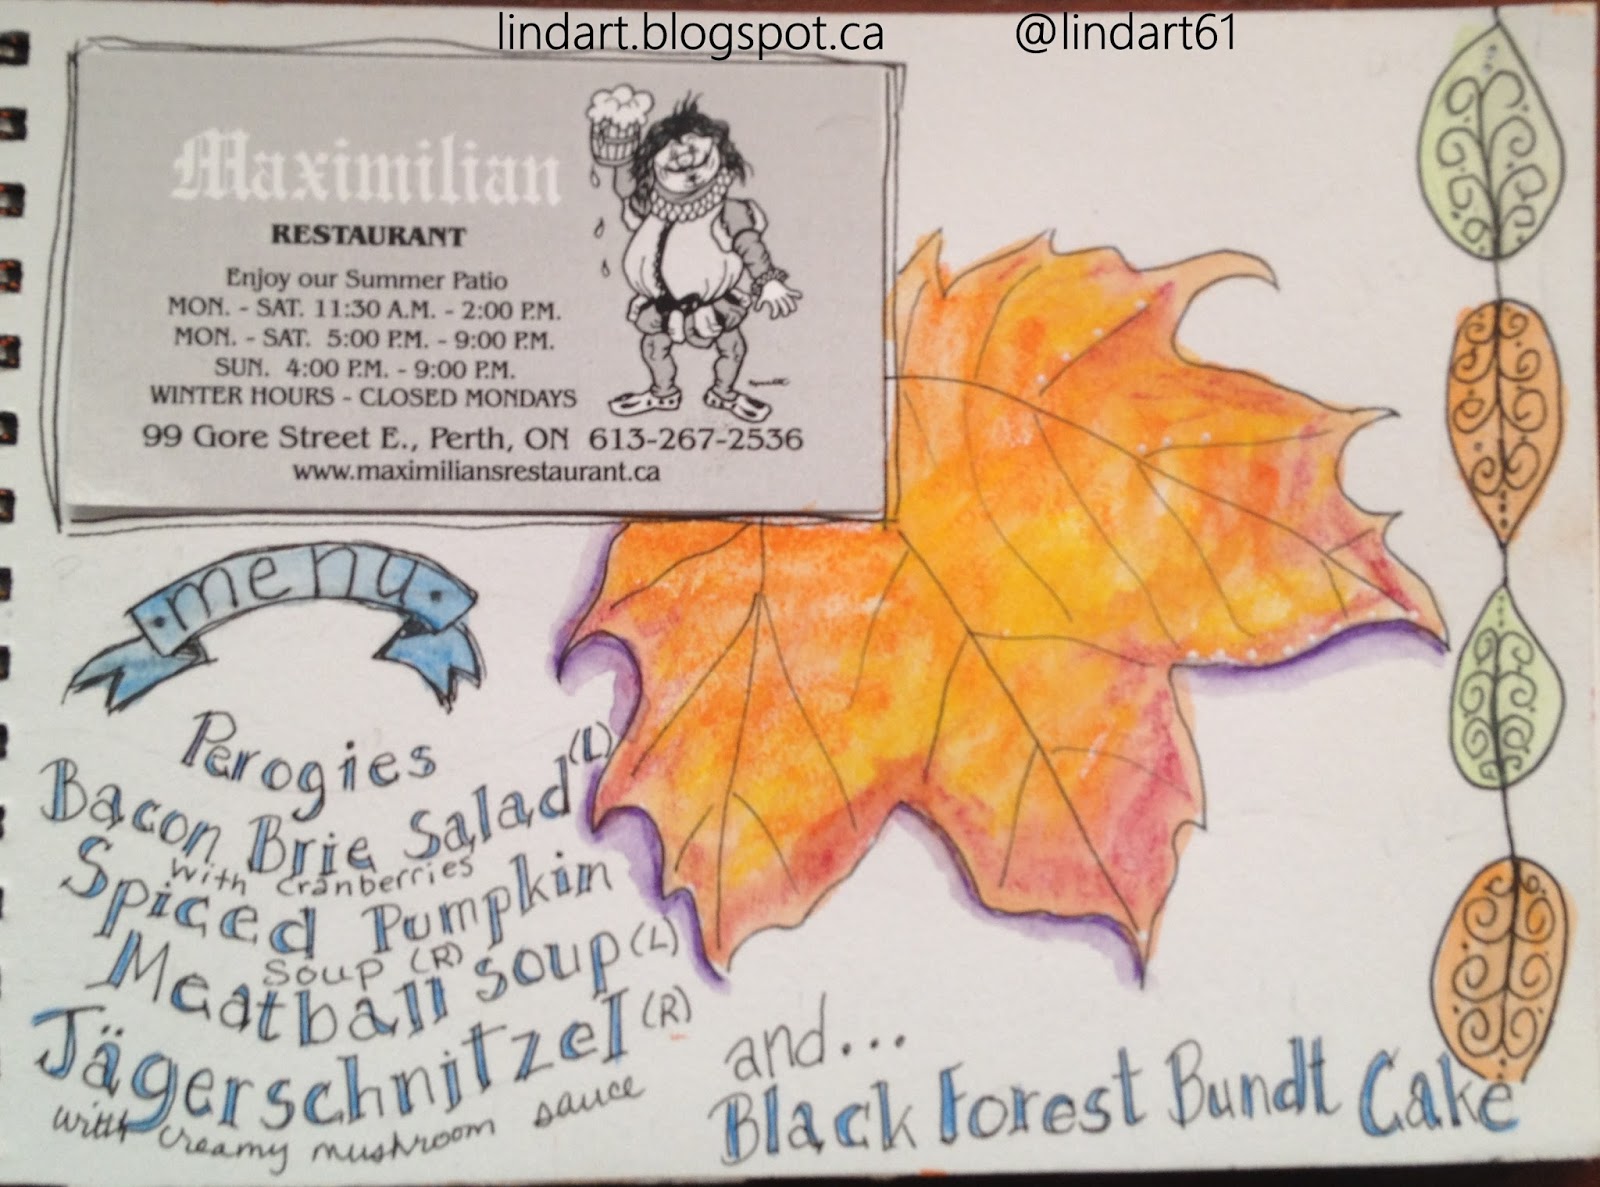 lindart.blogspot.ca @lindart61
Maximilian
RESTAURANT
Enjoy our Summer Patio
MON. - SAT. 11:30 A.M. - 2:00 P.M.
MON. - SAT. 5:00 P.M. - 9:00 P.M.
SUN. 4:00 P.M. - 9:00 P.M.
WINTER HOURS - CLOSED MONDAYS
99 Gore Street E., Perth, ON 613-267-2536
www.maximiliansrestaurant.ca
menu
Perogies
Bacon Brie Salad (L)
with cranberries
Spiced Pumpkin
Soup (R)
Meatball soup (L)
Jägerschnitzel (R)
with creamy mushroom sauce
and...
Black Forest Bundt Cake